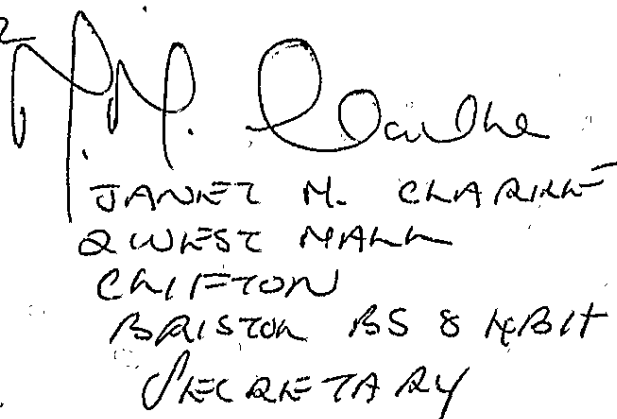 2
J.M. Clarke
JANET M. CLARKE
2 WEST MALL
CLIFTON
BRISTOL BS8 4BH
SECRETARY